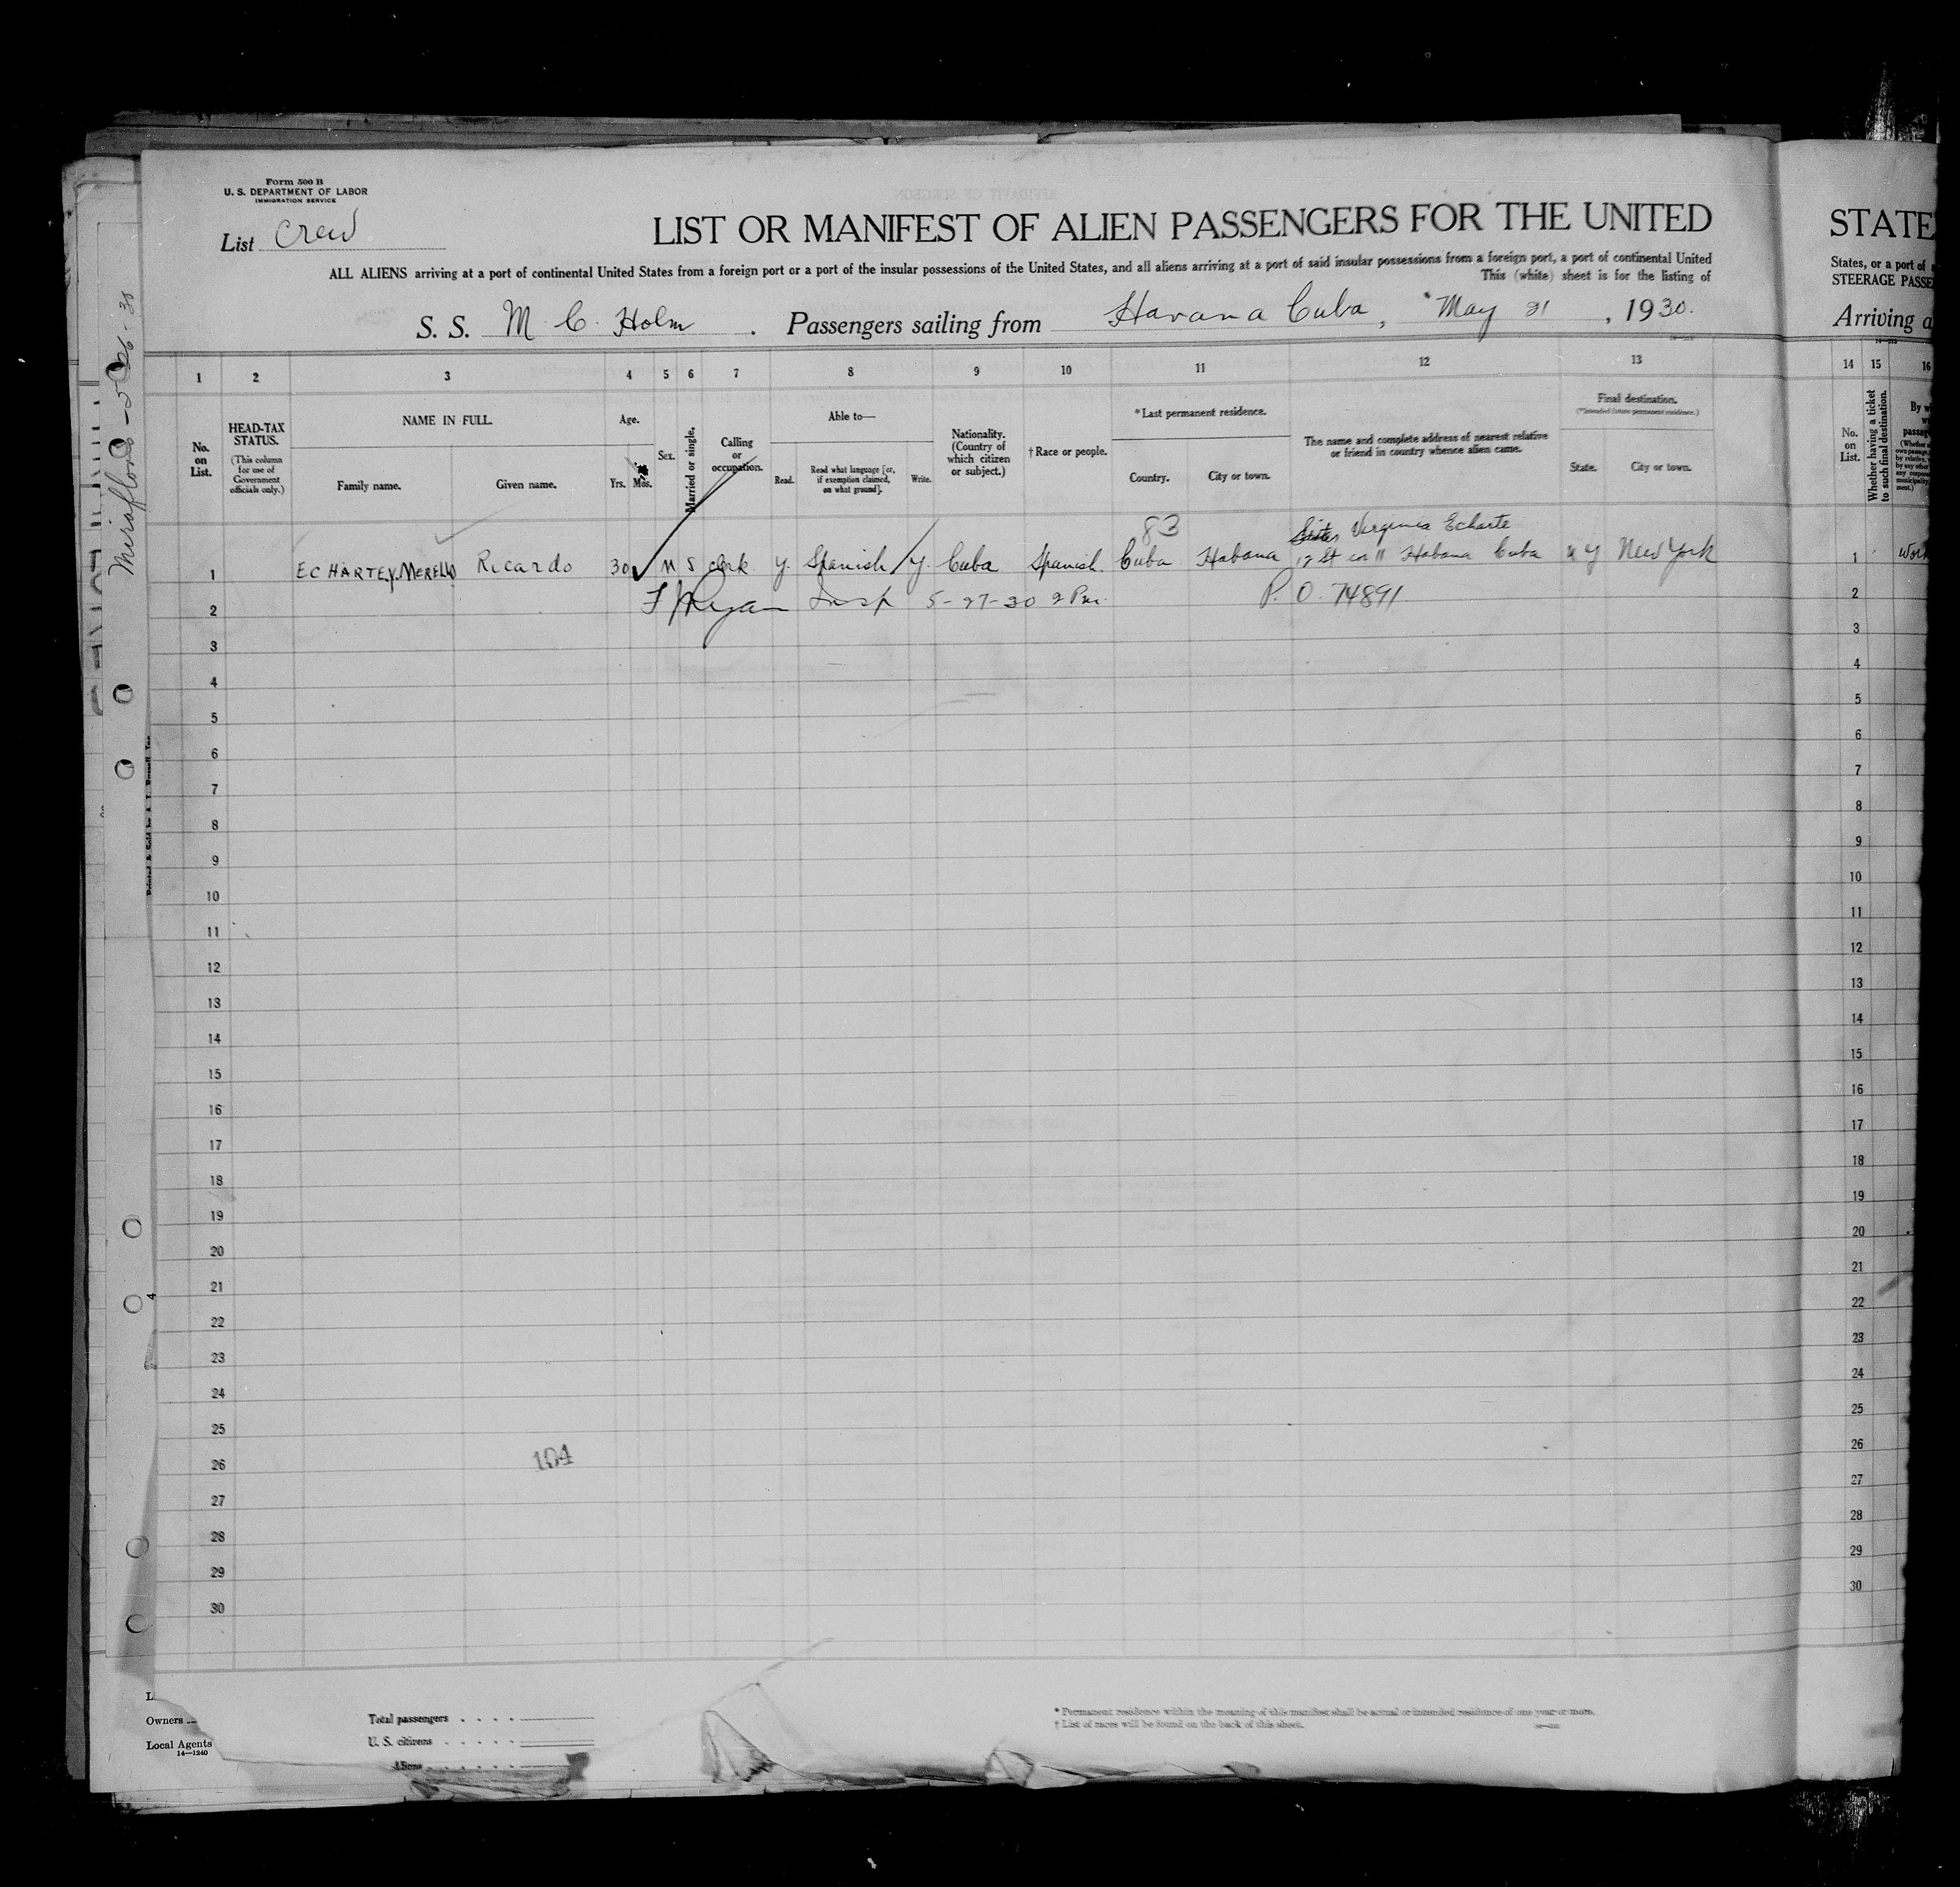 Form 500 B
U. S. DEPARTMENT OF LABOR
IMMIGRATION SERVICE
List Crew
LIST OR MANIFEST OF ALIEN PASSENGERS FOR THE UNITED
ALL ALIENS arriving at a port of continental United States from a foreign port or a port of the insular possessions of the United States, and all aliens arriving at a port of said insular possessions from a foreign port, a port of continental United
This (white) sheet is for the listing of
S. S. M. C. Holm . Passengers sailing from Havana Cuba, May 21, 1930.
1 2 3 4 5 6 7 8 9 10 11 12 13
No. on List.
HEAD-TAX STATUS. (This column for use of Government officials only.)
NAME IN FULL.
Family name. Given name.
Age. Yrs. Mos.
Sex.
Married or single.
Calling or occupation.
Able to—
Read. Read what language [or, if exemption claimed, on what ground]. Write.
Nationality. (Country of which citizen or subject.)
† Race or people.
* Last permanent residence.
Country. City or town.
The name and complete address of nearest relative or friend in country whence alien came.
Final destination.
(**Intended future permanent residence.)
State. City or town.
83 Virginia Echarte
1 ECHARTE Y. MERELLO Ricardo 30 M S clerk y. Spanish y. Cuba Spanish Cuba Habana Habana Cuba N Y New York
2 Ryan Insp 5-27-30 2 Pm. P. O. 74891
3
4
5
6
7
8
9
10
11
12
13
14
15
16
17
18
19
20
21
22
23
24
25
26
27
28
29
30
104
Owners
Local Agents
14—1240
Total passengers
U. S. citizens
Aliens
* Permanent residence within the meaning of this manifest shall be actual or intended residence of one year or more.
† List of races will be found on the back of this sheet.
Miraflores
4
STATE
States, or a port of
STEERAGE PASSE
Arriving a
14 15 16
No. on List.
Whether having a ticket to such final destination.
1
2
3
4
5
6
7
8
9
10
11
12
13
14
15
16
17
18
19
20
21
22
23
24
25
26
27
28
29
30